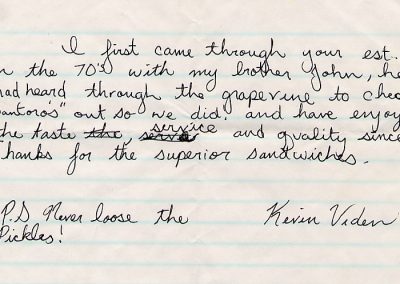 I first came through your est.
n the 70's with my brother John, he
had heard through the grapevine to chec
antoro's" out so we did! and have enjoy
the taste the service and quality since
Thanks for the superior sandwiches.
P.S Never loose the Kevin Viden
Pickles!